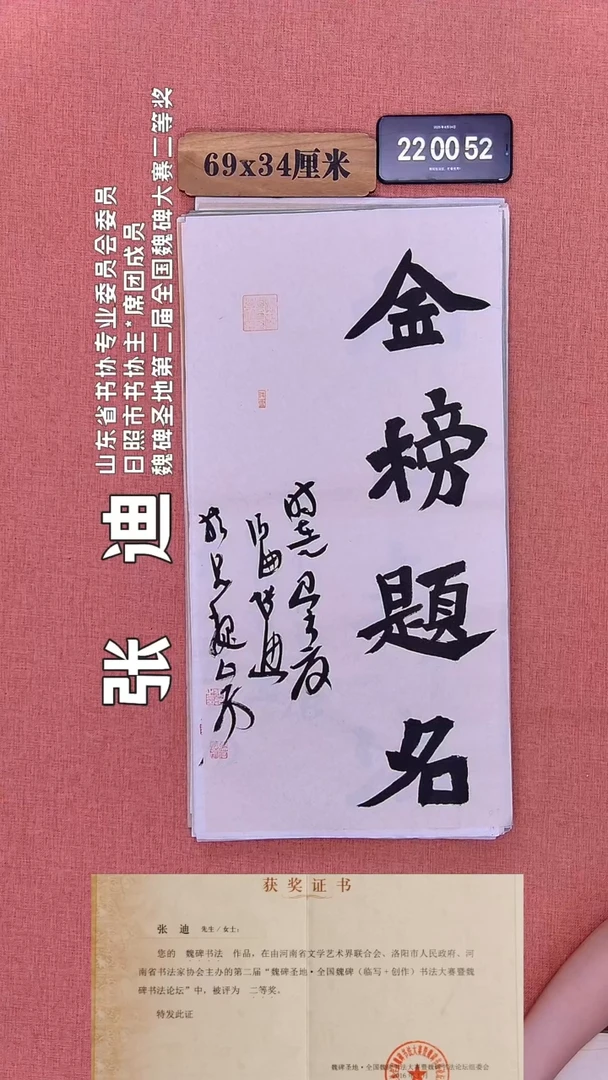 69x34厘米
22 00 52
山东省书协专业委员会委员
日照市书协主*席团成员
魏碑圣地第二届全国魏碑大赛二等奖
张 迪
金榜题名
获奖证书
张 迪 先生/女士：
您的 魏碑书法 作品，在由河南省文学艺术界联合会、洛阳市人民政府、河
南省书法家协会主办的第二届“魏碑圣地·全国魏碑（临写+创作）书法大赛暨魏
碑书法论坛”中，被评为 二等奖。
特发此证
魏碑圣地·全国魏碑书法大赛暨魏碑书法论坛组委会